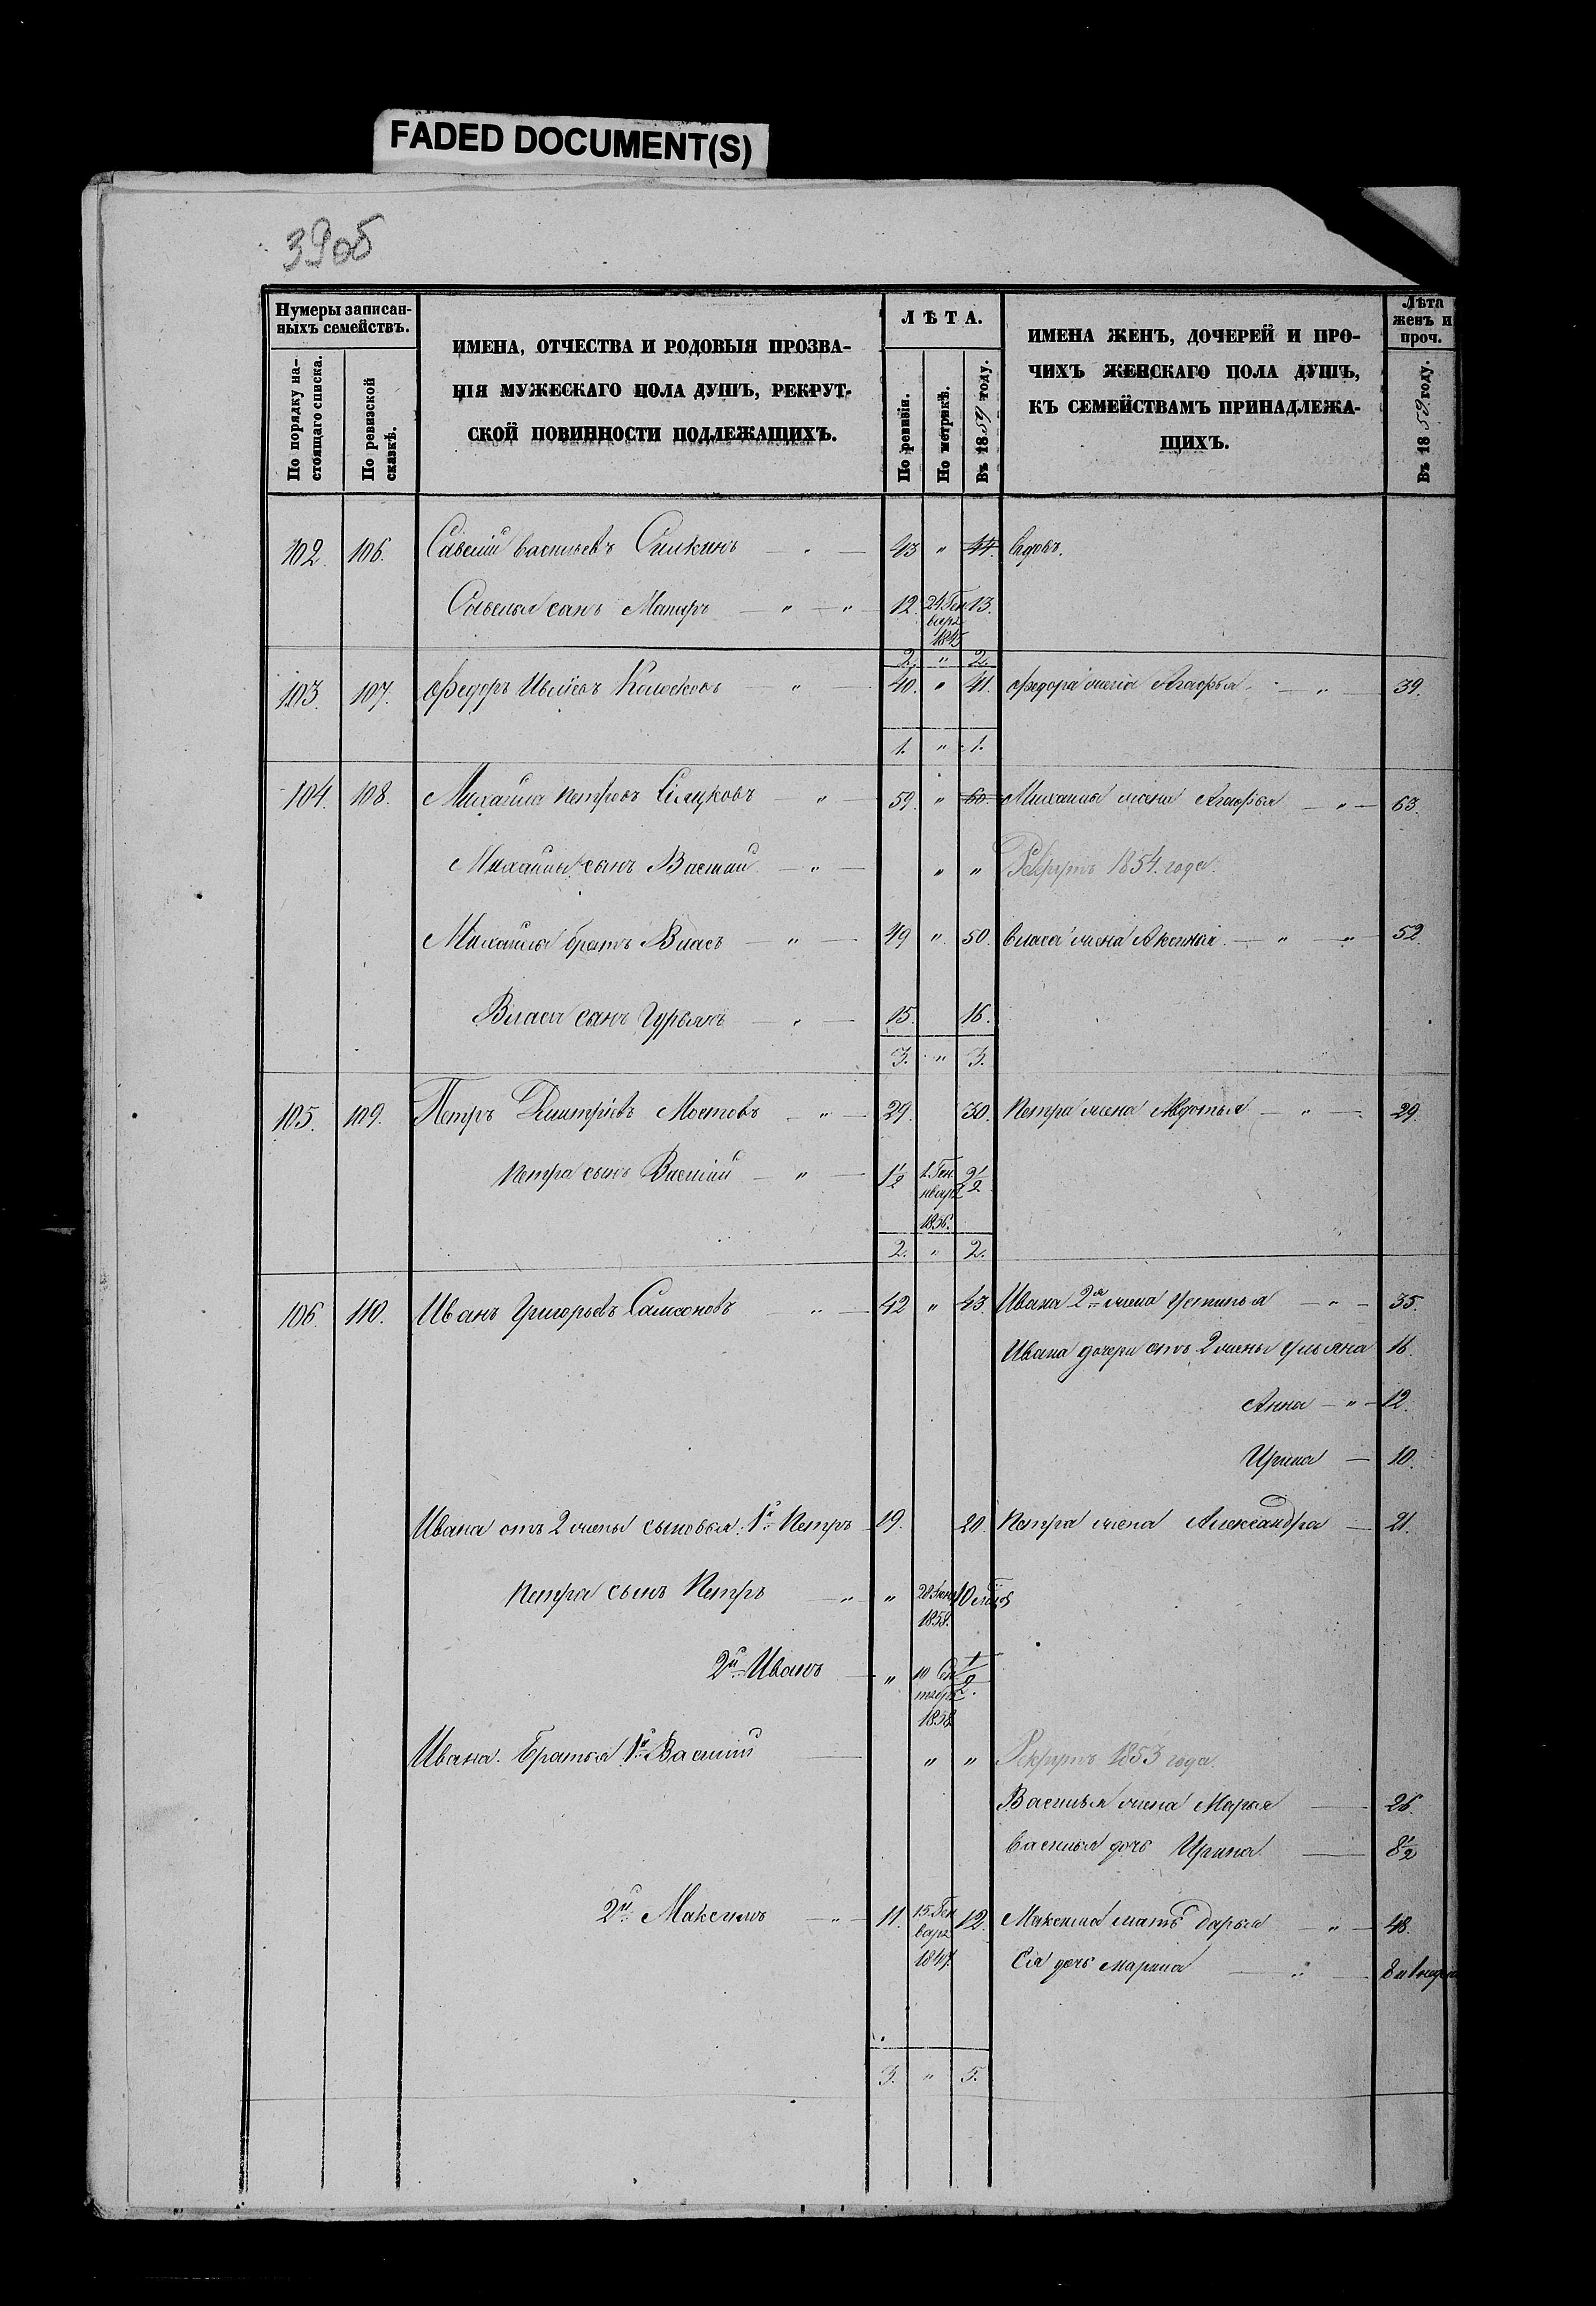 FADED DOCUMENT(S)
39об
Нумеры записан-
ныхъ семействъ.
По порядку на-
стоящаго списка.
По ревизской
сказкѣ.
ИМЕНА, ОТЧЕСТВА И РОДОВЫЯ ПРОЗВА-
НІЯ МУЖЕСКАГО ПОЛА ДУШЪ, РЕКРУТ-
СКОЙ ПОВИННОСТИ ПОДЛЕЖАЩИХЪ.
ЛѢТА.
По ревизіи.
По метрикѣ.
Въ 1859 году.
ИМЕНА ЖЕНЪ, ДОЧЕРЕЙ И ПРО-
ЧИХЪ ЖЕНСКАГО ПОЛА ДУШЪ,
КЪ СЕМЕЙСТВАМЪ ПРИНАДЛЕЖА-
ЩИХЪ.
Лѣта
женъ и
проч.
Въ 1859 году.
102. 106. Савелій Васильевъ — " — 43 " 44. вдовъ.
Савелья сынъ — " — " 12. 24 Ген 13.
варя
1845
2. " 2.
103. 107. Федоръ " — 40. " 41. Федора жена Агафья — " — 39.
1. " 1.
104. 108. Михайла Петровъ — " — 59. " 60. Михайлы жена Агафья — " — 63.
Михайлы сынъ Василій — " — " " Рекрутъ 1854. года.
Михайлы братъ Власъ — " — 49 " 50. Власа жена Аксинья — " — " 52.
Власа сынъ Гурьянъ — " — 15. 16.
3. " 3.
105. 109. Петръ Дмитріевъ Мостовъ — " — 29. 30. Петра жена Авдотья — " — 29.
Петра сынъ Василій — " — 1½ 1 Ген 2½
нваря
1856.
2. " 2.
106. 110. Иванъ Григорьевъ Самсоновъ " — 42 " 43. Ивана 2я жена Устинья — " — 35.
Ивана дочери отъ 2 жены Ульяна 16.
Анна — " — 12.
Ирина — 10.
Ивана отъ 2 жены сыновья: 1й Петръ 19. 20. Петра жена Александра — 21.
Петра сынъ Петръ — " " 10 мѣс
1858.
2й Иванъ — " 10 Сен ½.
тября
1858
Ивана Братья 1й Василій — " " Рекрутъ 1853 года.
Василья жена Марья — 26.
Василья дочь Ирина — 8½
2й Максимъ — " — 11. 15. Ген 12. Максима мать Дарья — " — 48.
варя
1847. Ея дочь Марина — " — 8
3. " 5.